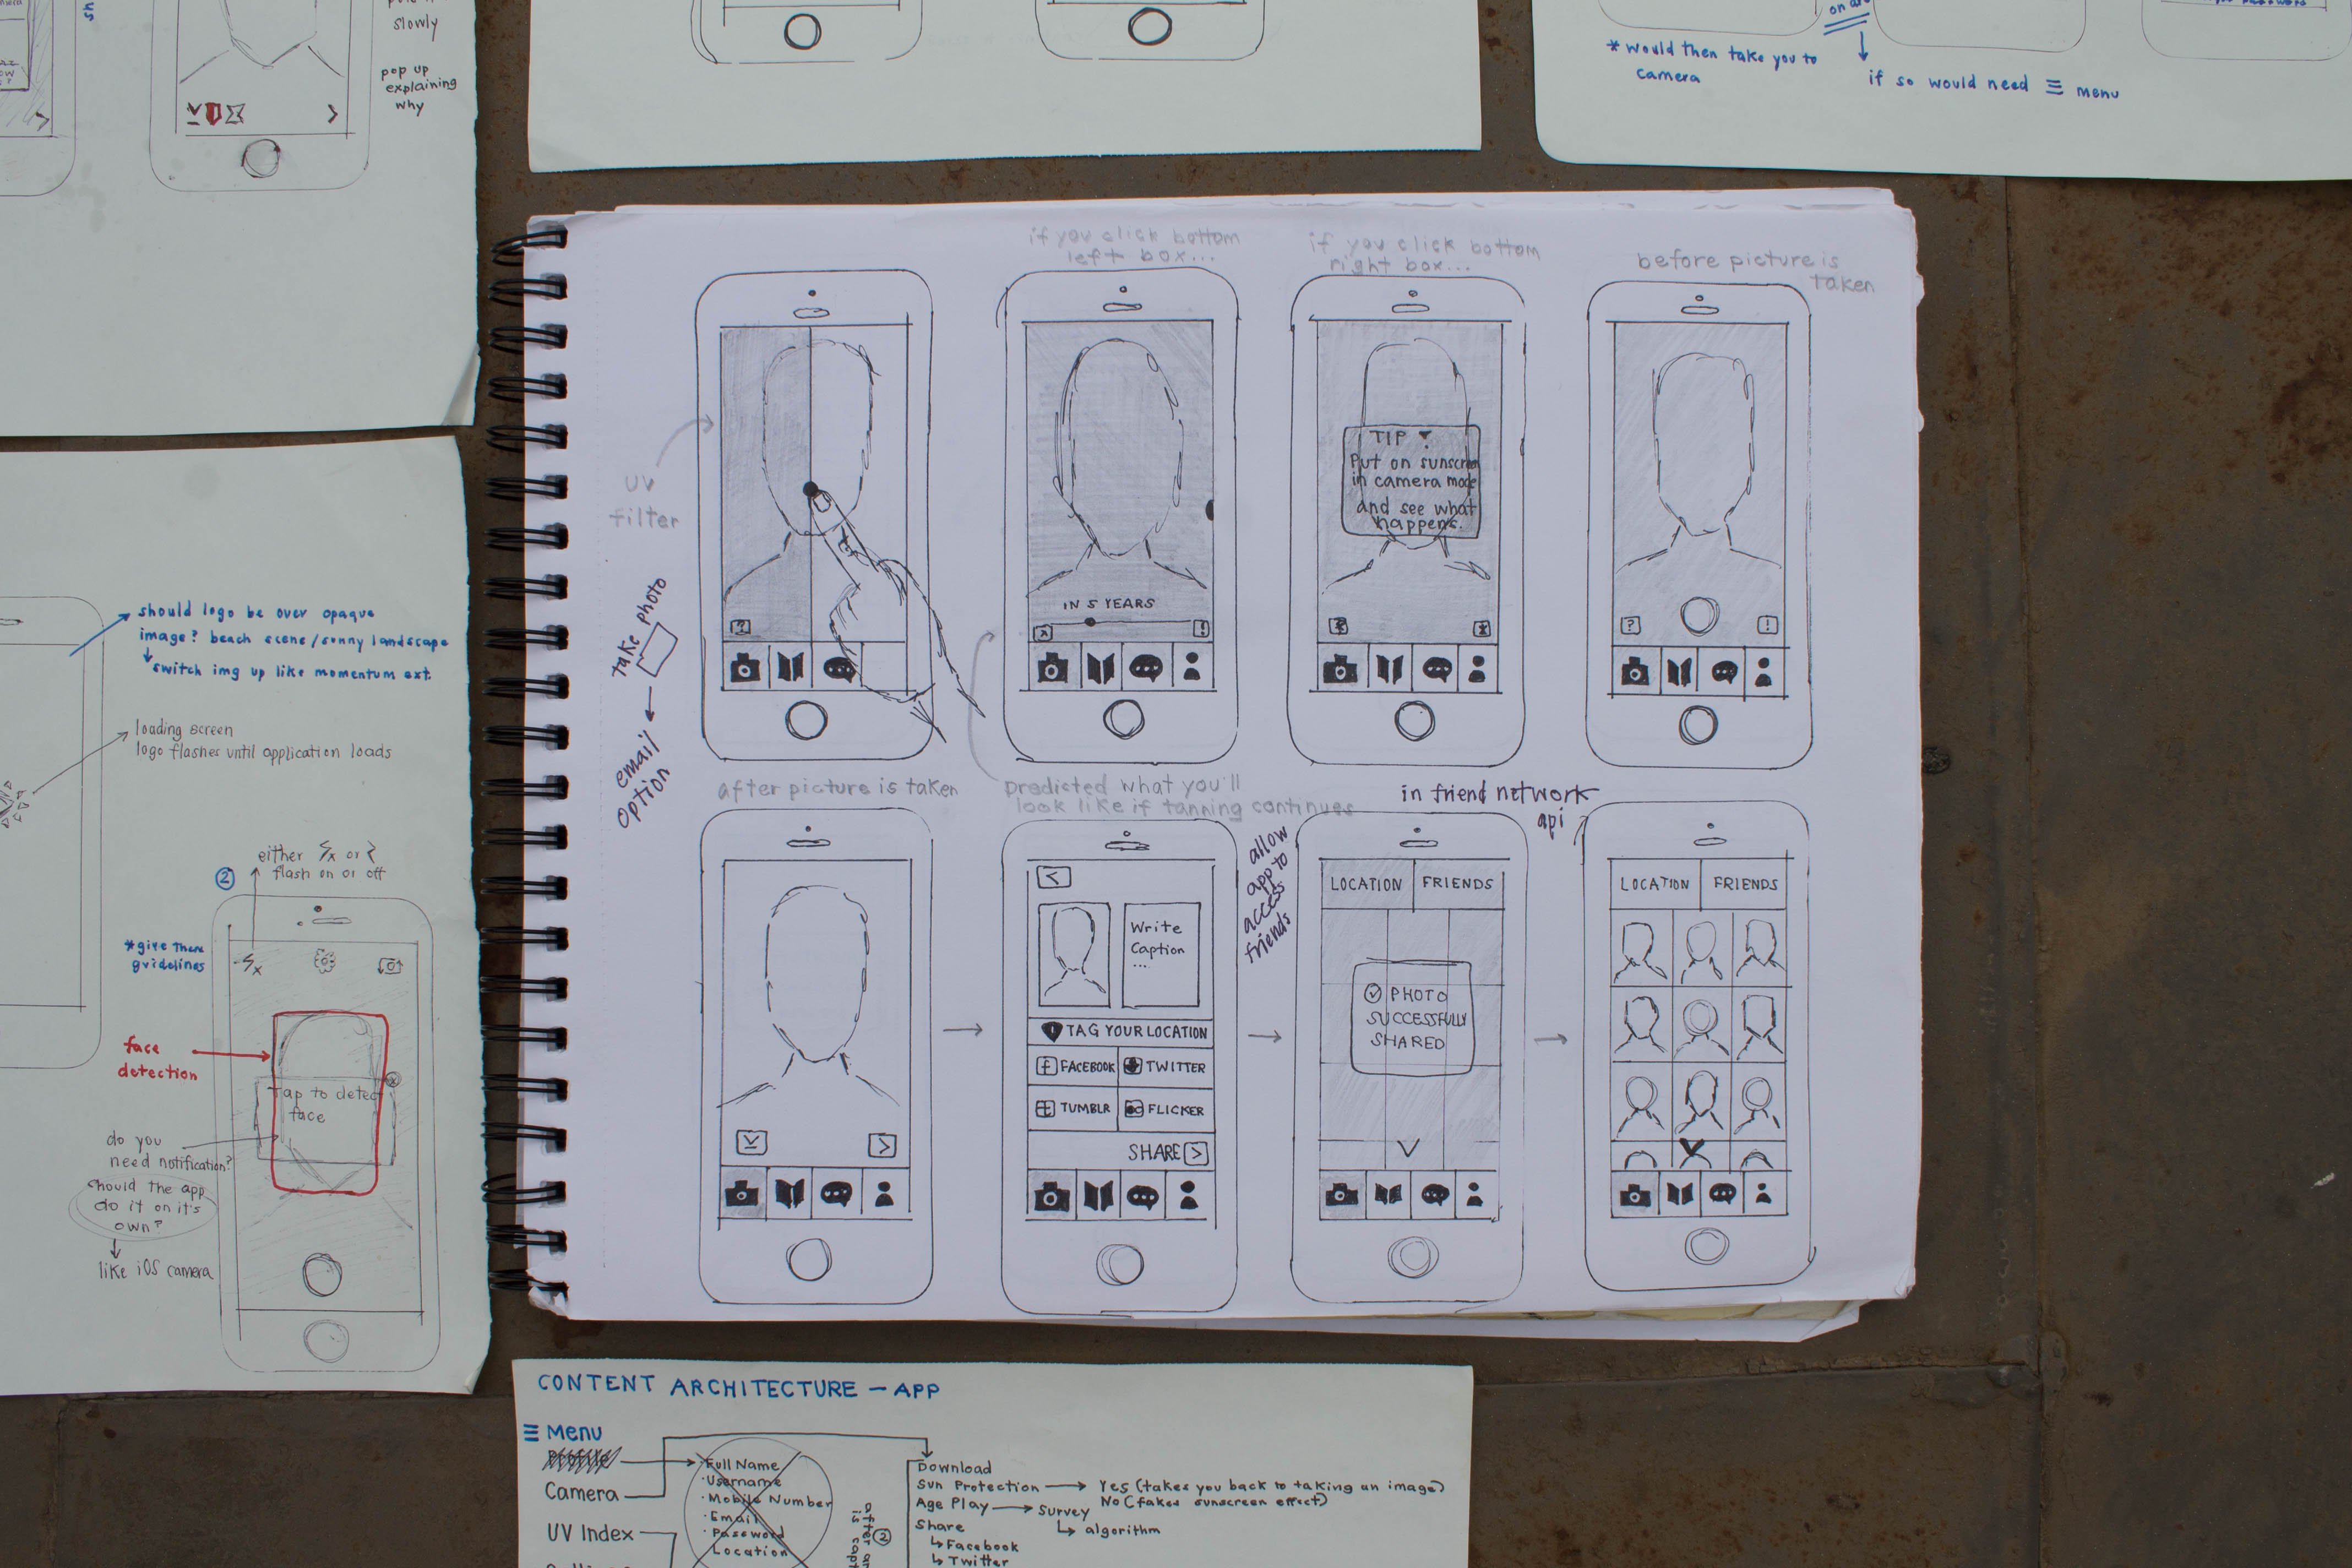 slowly
pop up
explaining
why
* would then take you to
camera
if so would need ☰ menu
if you click bottom
left box...
if you click bottom
right box...
before picture is
taken
UV
filter
TIP
Put on sunscreen
in camera mode
and see what
happens.
IN 5 YEARS
?
!
?
!
take photo
email
option
after picture is taken
predicted what you'll
look like if tanning continues
in friend network
api
allow
app to
access
friends
<
Write
Caption
...
TAG YOUR LOCATION
f FACEBOOK
TWITTER
t TUMBLR
FLICKER
SHARE >
LOCATION FRIENDS
PHOTO
SUCCESSFULLY
SHARED
LOCATION FRIENDS
should logo be over opaque
image? beach scene/sunny landscape
switch img up like momentum ext.
loading screen
logo flashes until application loads
2
either or
flash on or off
*give them
guidelines
face
detection
Tap to detect
face
do you
need notification?
should the app
do it on it's
own?
like iOS camera
CONTENT ARCHITECTURE — APP
☰ Menu
Profile
Camera
UV Index
·Full Name
·Username
·Mobile Number
·Email
·Password
Location
Download
Sun Protection → Yes (takes you back to taking an image)
No (fakes sunscreen effect)
Age Play → Survey
↳ algorithm
Share
↳ Facebook
↳ Twitter
2